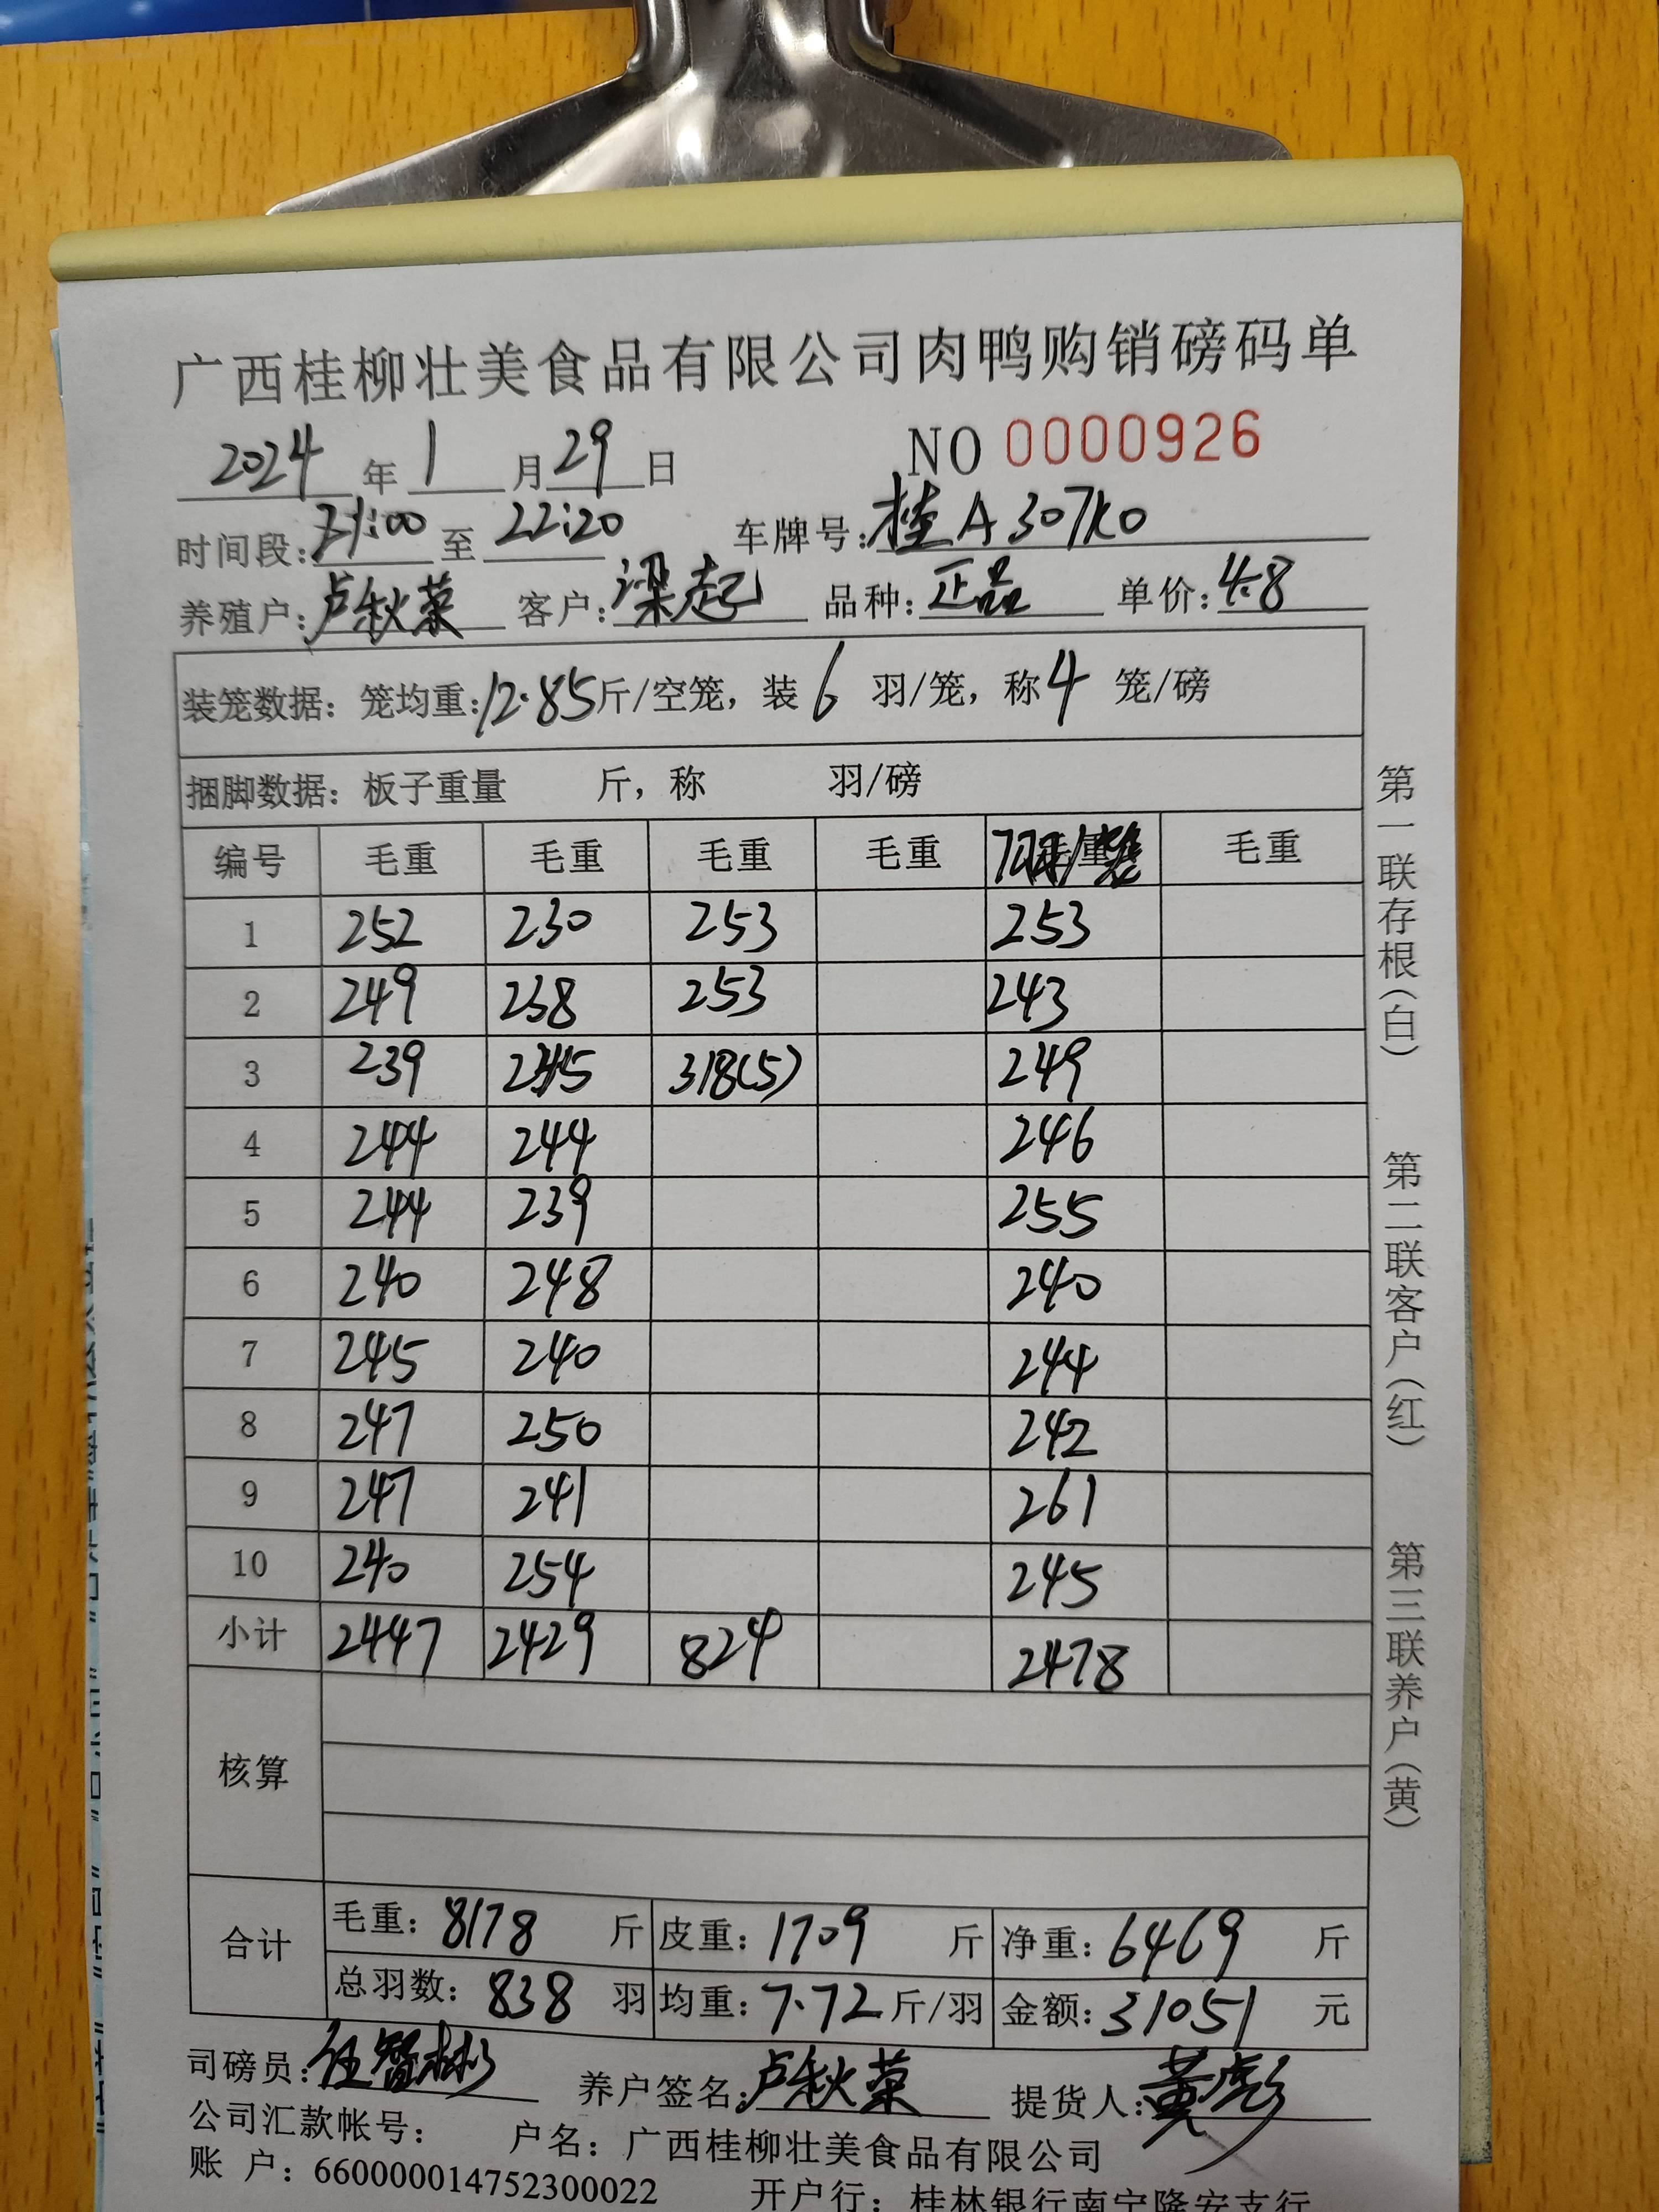 广西桂柳壮美食品有限公司肉鸭购销磅码单
2024年1月29日 NO 0000926
时间段:21:00至22:20 车牌号:桂A307K0
养殖户:卢秋菜 客户:梁起 品种:正品 单价:4.8
装笼数据：笼均重:12.85斤/空笼，装6羽/笼，称4笼/磅
捆脚数据：板子重量 斤，称 羽/磅
编号 毛重 毛重 毛重 毛重 7羽/笼 毛重
1 252 230 253 253
2 249 238 253 243
3 239 245 318(5) 249
4 244 244 246
5 244 239 255
6 240 248 240
7 245 240 244
8 247 250 242
9 247 241 261
10 240 254 245
小计 2447 2429 824 2478
核算
合计 毛重：8178斤 皮重：1709斤 净重：6469斤
总羽数：838羽 均重：7.72斤/羽 金额：31051元
司磅员:任智彬 养户签名:卢秋菜 提货人:黄彪
公司汇款帐号： 户名：广西桂柳壮美食品有限公司
账 户：660000014752300022 开户行：桂林银行南宁隆安支行
第一联存根(白) 第二联客户(红) 第三联养户(黄)